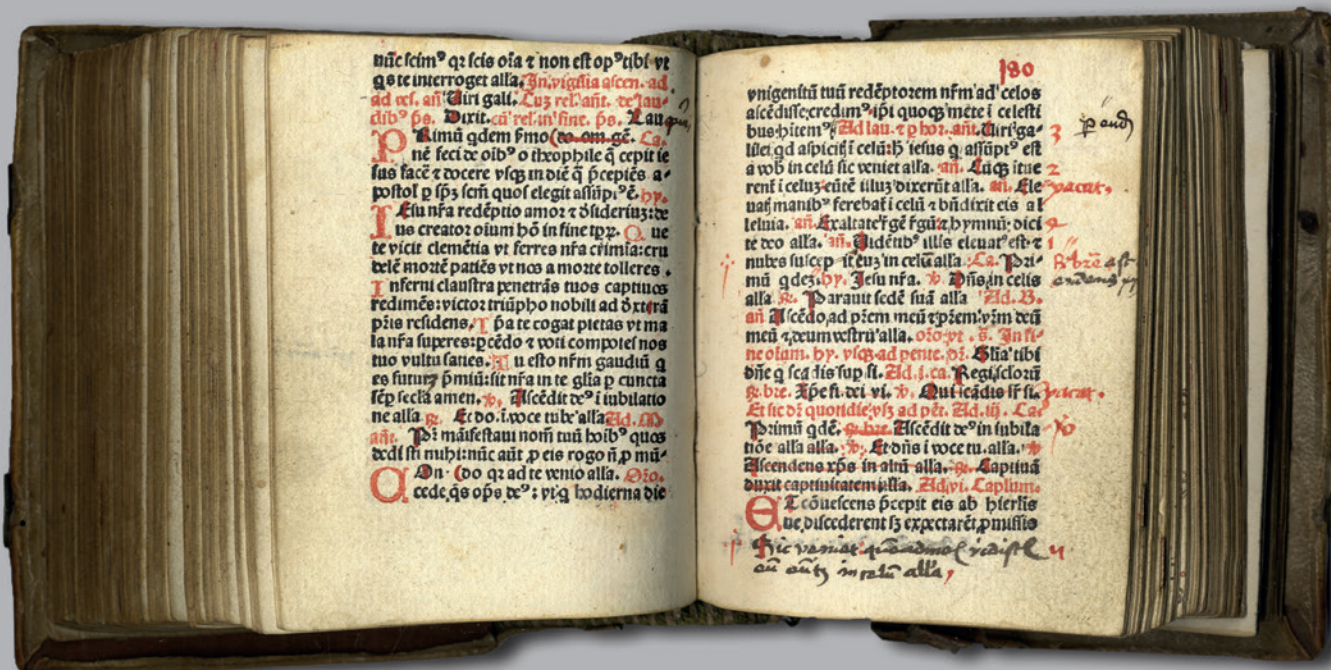 nūc scimꝰ qꝛ scis oīa ⁊ non est opꝰ tibi vt
q̄s te interroget alľa. In vigilia ascen. ad
ad ves. añ Uiri gali. Cuz rel. añt. de lau-
dibꝰ ps. Dixit. cū rel. in fine. ps. Lau
PRimū qdem ṡmo (to. om. gē. Ca.
nē feci de oībꝰ o theophile q̄ cepit ie
sus facē ⁊ docere vsqꝫ in diē q̄ p̄cepiēs a-
postoľ ꝑ spm̄ scm̄ quos elegit assūpꝰ ē. hy.
IEsu nr̄a redēptio amor ⁊ dsideriuꝫ: de
us creator oium hō in fine tpꝝ. Que
te vicit clemētia vt ferres nr̄a crīmia: cru
delē mortē patiēs vt nos a morte tolleres.
Inferni claustra penetrās tuos captiuos
redimēs: victor triūpho nobili ad dxterā
pr̄is residens. Ipa te cogat pietas vt ma
la nr̄a superes: ꝑcēdo ⁊ voti compotes nos
tuo vultu saties. Tu esto nr̄m gaudiū q
es futurꝰ p̄miū: sit nr̄a in te glīa ꝑ cuncta
sēꝑ secla amen. ℣. Ascēdit deꝰ i iubilatio
ne alla ℟. Et do. i voce tube alľa Ad. M
añt. Pr̄ māifestaui nom̄ tuū hoībꝰ quos
dedisti mihi: nūc aūt ꝓ eis rogo n̄ ꝓ mū-
COn. (do qꝛ ad te venio alla. Oro.
cede q̄s op̄s deꝰ: vt q hodierna die
180
vnigenitū tuū redēptorem nr̄m ad celos
ascēdisse credimꝰ ip̄i quoqꝫ mēte i celesti
bus hitemꝰ Ad lau. ⁊ ꝑ hor. añt. Uiri ga-
lilei qd aspicitꝭ i celū: h̄ iesus q assūptꝰ est 3
a vob in celū sic veniet alľa. añ. Cūqꝫ itue 2
rent i celuꝫ eūtē illuꝫ dixerūt alľa. añ. Ele vacat,
uatꝭ manibꝰ ferebat i celū ⁊ bn̄dixit eis al
leluia. añ. Exaltate rgē rgū ⁊ hymnū dici 4
te deo alľa. añ. Uidētibꝰ illis eleuatꝰ est ⁊ 1
nubes suscepit euꝫ in celū alľa. Ca. Pri- ℟ brē asc
mū qdeꝫ. hy. Iesu nr̄a. ℣. Dn̄s in celis
alľa ℟. Parauit sedē suā alľa Ad. B.
añ Ascēdo ad pr̄em meū ⁊ pr̄em vr̄m deū
meū ⁊ deum vestrū alľa. oro. vt. s̄. In fi-
ne olam. hy. vsqꝫ ad pente. dr̄. Glīa tibi
dn̄e q scādis sup si. Ad. i. ca. Regi sclorū
℟. bre. Xpe fi. dei vi. ℣. Qui scādis sr̄ si. vacat.
Et sic dr̄ quotidie vsqꝫ ad pēt. Ad. iij. Ca.
Primū qdē. ℟. bre. Ascēdit deꝰ in iubila
tiōe alľa alľa. ℣. Et dn̄s i voce tu. alľa. ℣
Ascendens xp̄s in altū alľa. ℟. Captiuā
duxit captiuitatem alľa. Ad. vi. Caplum.
ET cōuescens p̄cepit eis ab hierlis
ne discederent sꝫ expectarēt ꝓmissis
Sic veniet quēadmoꝫ vidistꝭ
eū eūtꝫ in celū alľa,